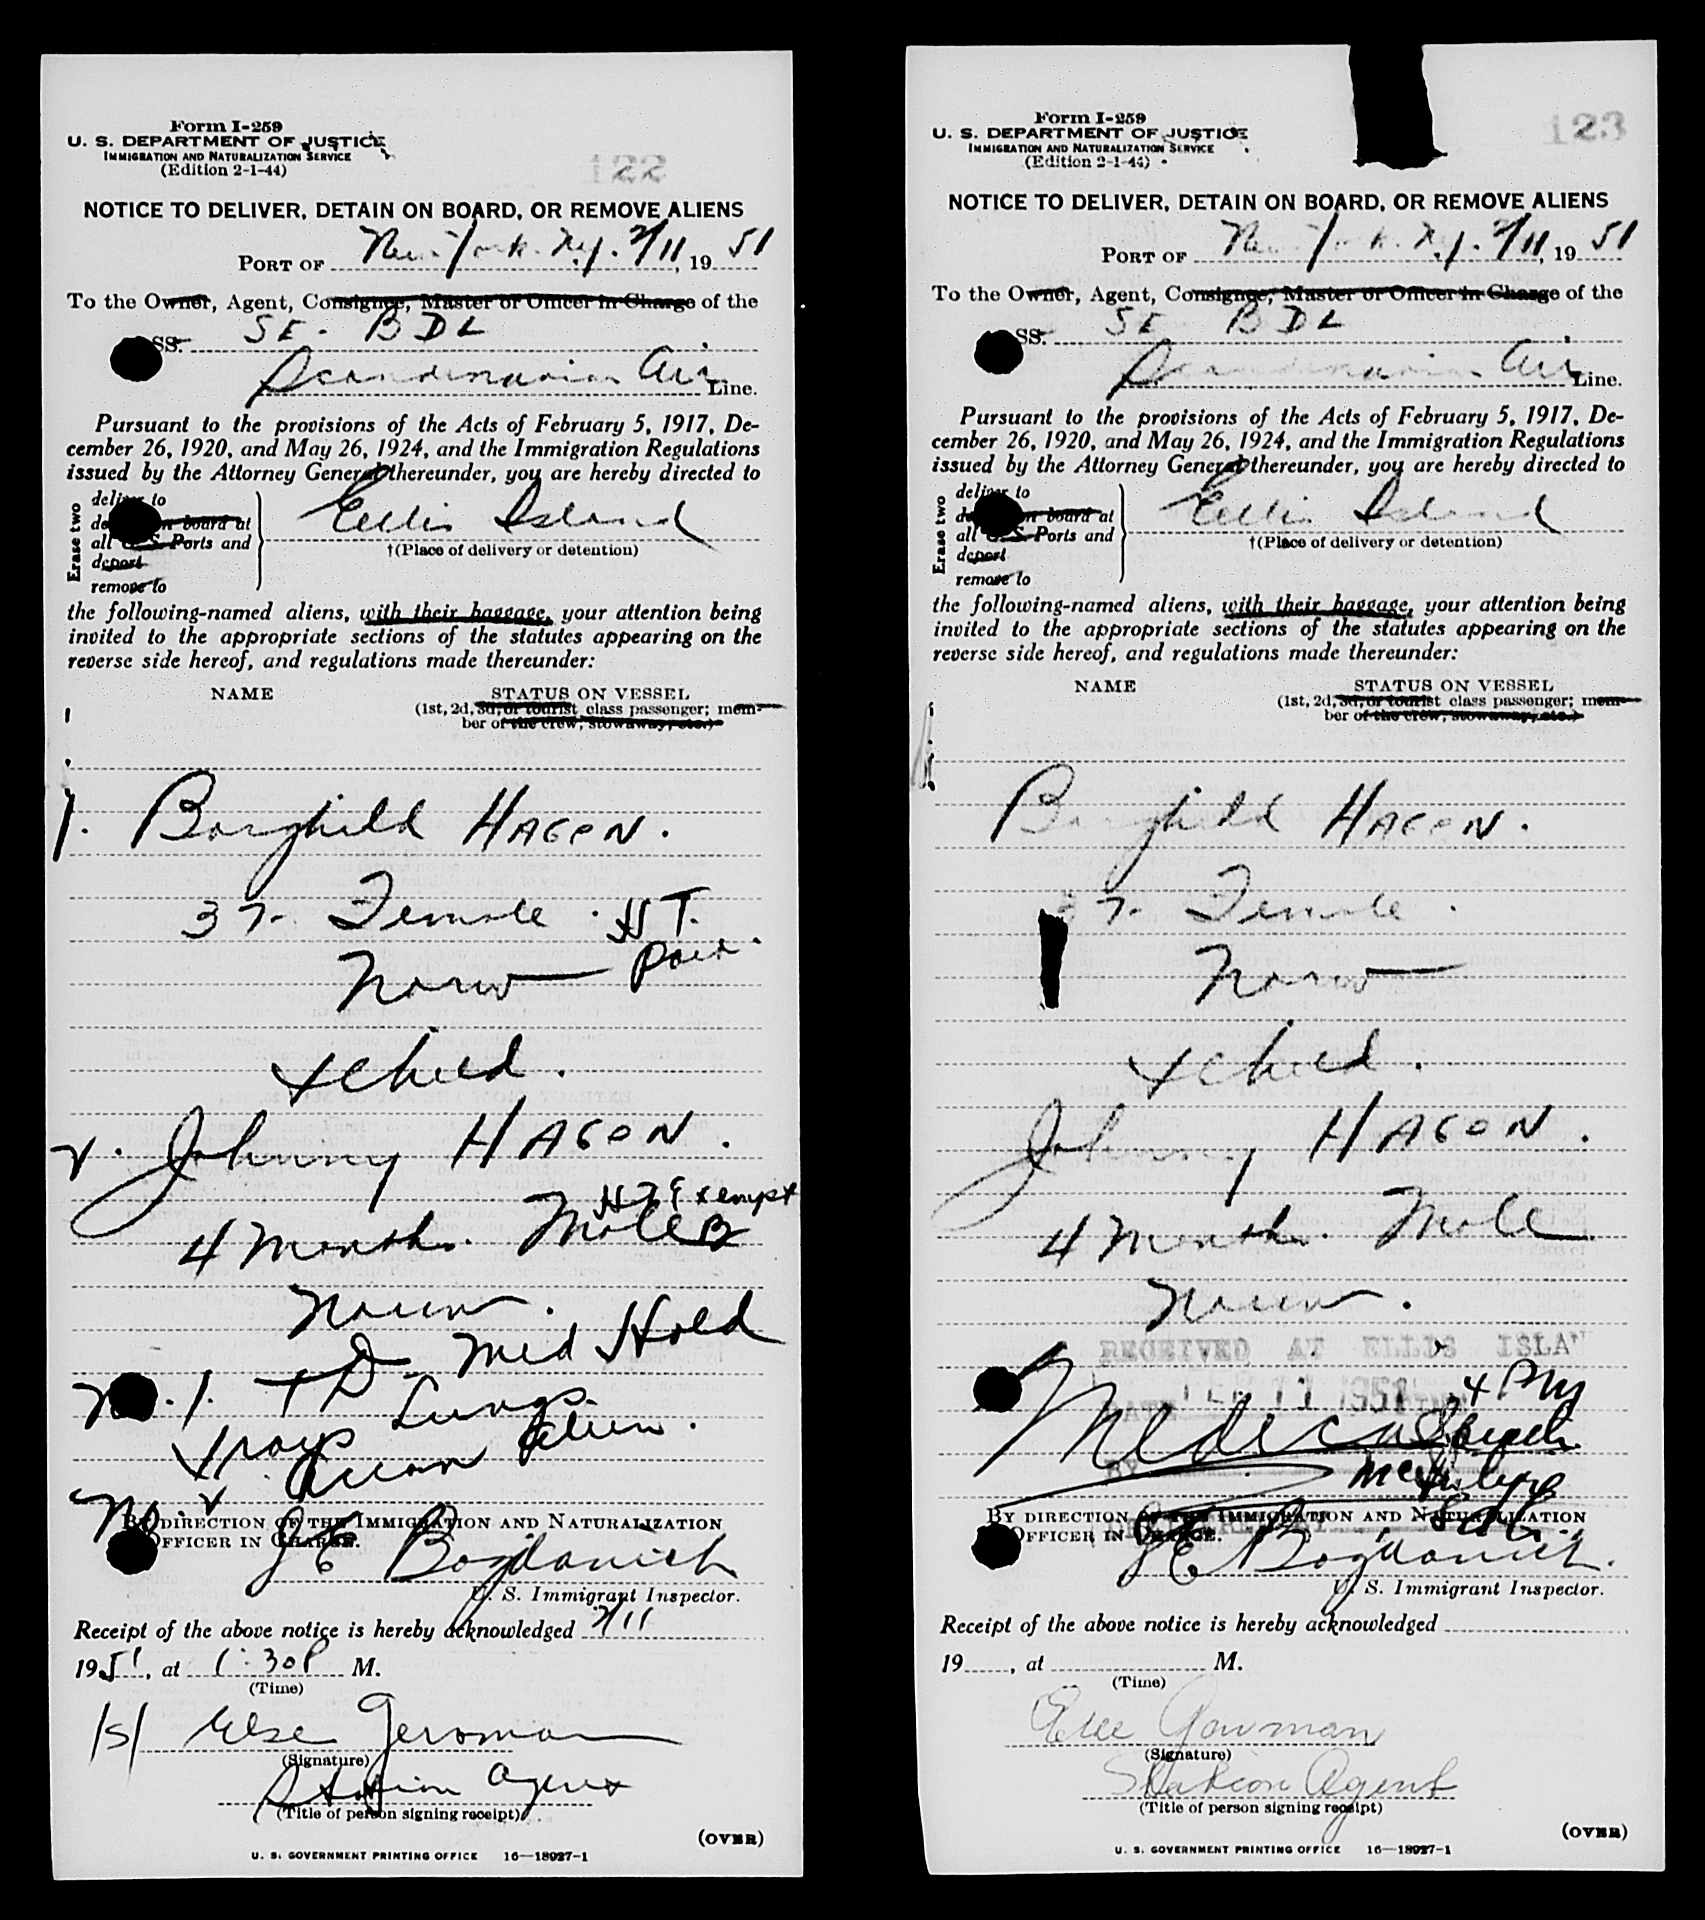 Form I-259
U. S. DEPARTMENT OF JUSTICE
IMMIGRATION AND NATURALIZATION SERVICE
(Edition 2-1-44)
122
NOTICE TO DELIVER, DETAIN ON BOARD, OR REMOVE ALIENS
PORT OF New York. N.Y. 2/11, 19 51
To the Owner, Agent, Consignee, Master or Officer in Charge of the
SS. SE - BDL
Scandinavian Air Line.
Pursuant to the provisions of the Acts of February 5, 1917, De-
cember 26, 1920, and May 26, 1924, and the Immigration Regulations
issued by the Attorney General thereunder, you are hereby directed to
Erase two
deliver to
detain on board at
all U. S. Ports and
deport
remove to
Ellis Island
†(Place of delivery or detention)
the following-named aliens, with their baggage, your attention being
invited to the appropriate sections of the statutes appearing on the
reverse side hereof, and regulations made thereunder:
NAME STATUS ON VESSEL
(1st, 2d, 3d, or tourist class passenger; mem-
ber of the crew, stowaway, etc.)
1. Borghild HAGEN.
37- Female. HT.
Norw Paid.
+ child.
2. Johnny HAGEN.
HT Exempt
4 Months. Male
Norw.
Med Hold
No. 1. TD Lungs.
Xrays
Alien.
No. 2
BY DIRECTION OF THE IMMIGRATION AND NATURALIZATION
OFFICER IN CHARGE.
J E Bogdanich
U. S. Immigrant Inspector.
Receipt of the above notice is hereby acknowledged 2/11
1951, at 1:30 P M.
(Time)
/s/ Else
(Signature)
Station Agent
(Title of person signing receipt)
(OVER)
U. S. GOVERNMENT PRINTING OFFICE 16—18927-1
Form I-259
U. S. DEPARTMENT OF JUSTICE
IMMIGRATION AND NATURALIZATION SERVICE
(Edition 2-1-44)
123
NOTICE TO DELIVER, DETAIN ON BOARD, OR REMOVE ALIENS
PORT OF New York. N.Y. 2/11, 19 51
To the Owner, Agent, Consignee, Master or Officer in Charge of the
SS. SE BDL
Scandinavian Air Line.
Pursuant to the provisions of the Acts of February 5, 1917, De-
cember 26, 1920, and May 26, 1924, and the Immigration Regulations
issued by the Attorney General thereunder, you are hereby directed to
Erase two
deliver to
detain on board at
all U. S. Ports and
deport
remove to
Ellis Island
†(Place of delivery or detention)
the following-named aliens, with their baggage, your attention being
invited to the appropriate sections of the statutes appearing on the
reverse side hereof, and regulations made thereunder:
NAME STATUS ON VESSEL
(1st, 2d, 3d, or tourist class passenger; mem-
ber of the crew, stowaway, etc.)
Borghild HAGEN.
37- Female.
Norw
+ child.
Johnny HAGEN.
4 Months. Male
Norw.
RECEIVED AT ELLIS ISLA
FEB 11 1951
Medical
BY
BY DIRECTION OF THE IMMIGRATION AND NATURALIZATION
OFFICER IN CHARGE.
J E Bogdanich.
U. S. Immigrant Inspector.
Receipt of the above notice is hereby acknowledged
19, at M.
(Time)
(Signature)
Station Agent
(Title of person signing receipt)
(OVER)
U. S. GOVERNMENT PRINTING OFFICE 16—18927-1